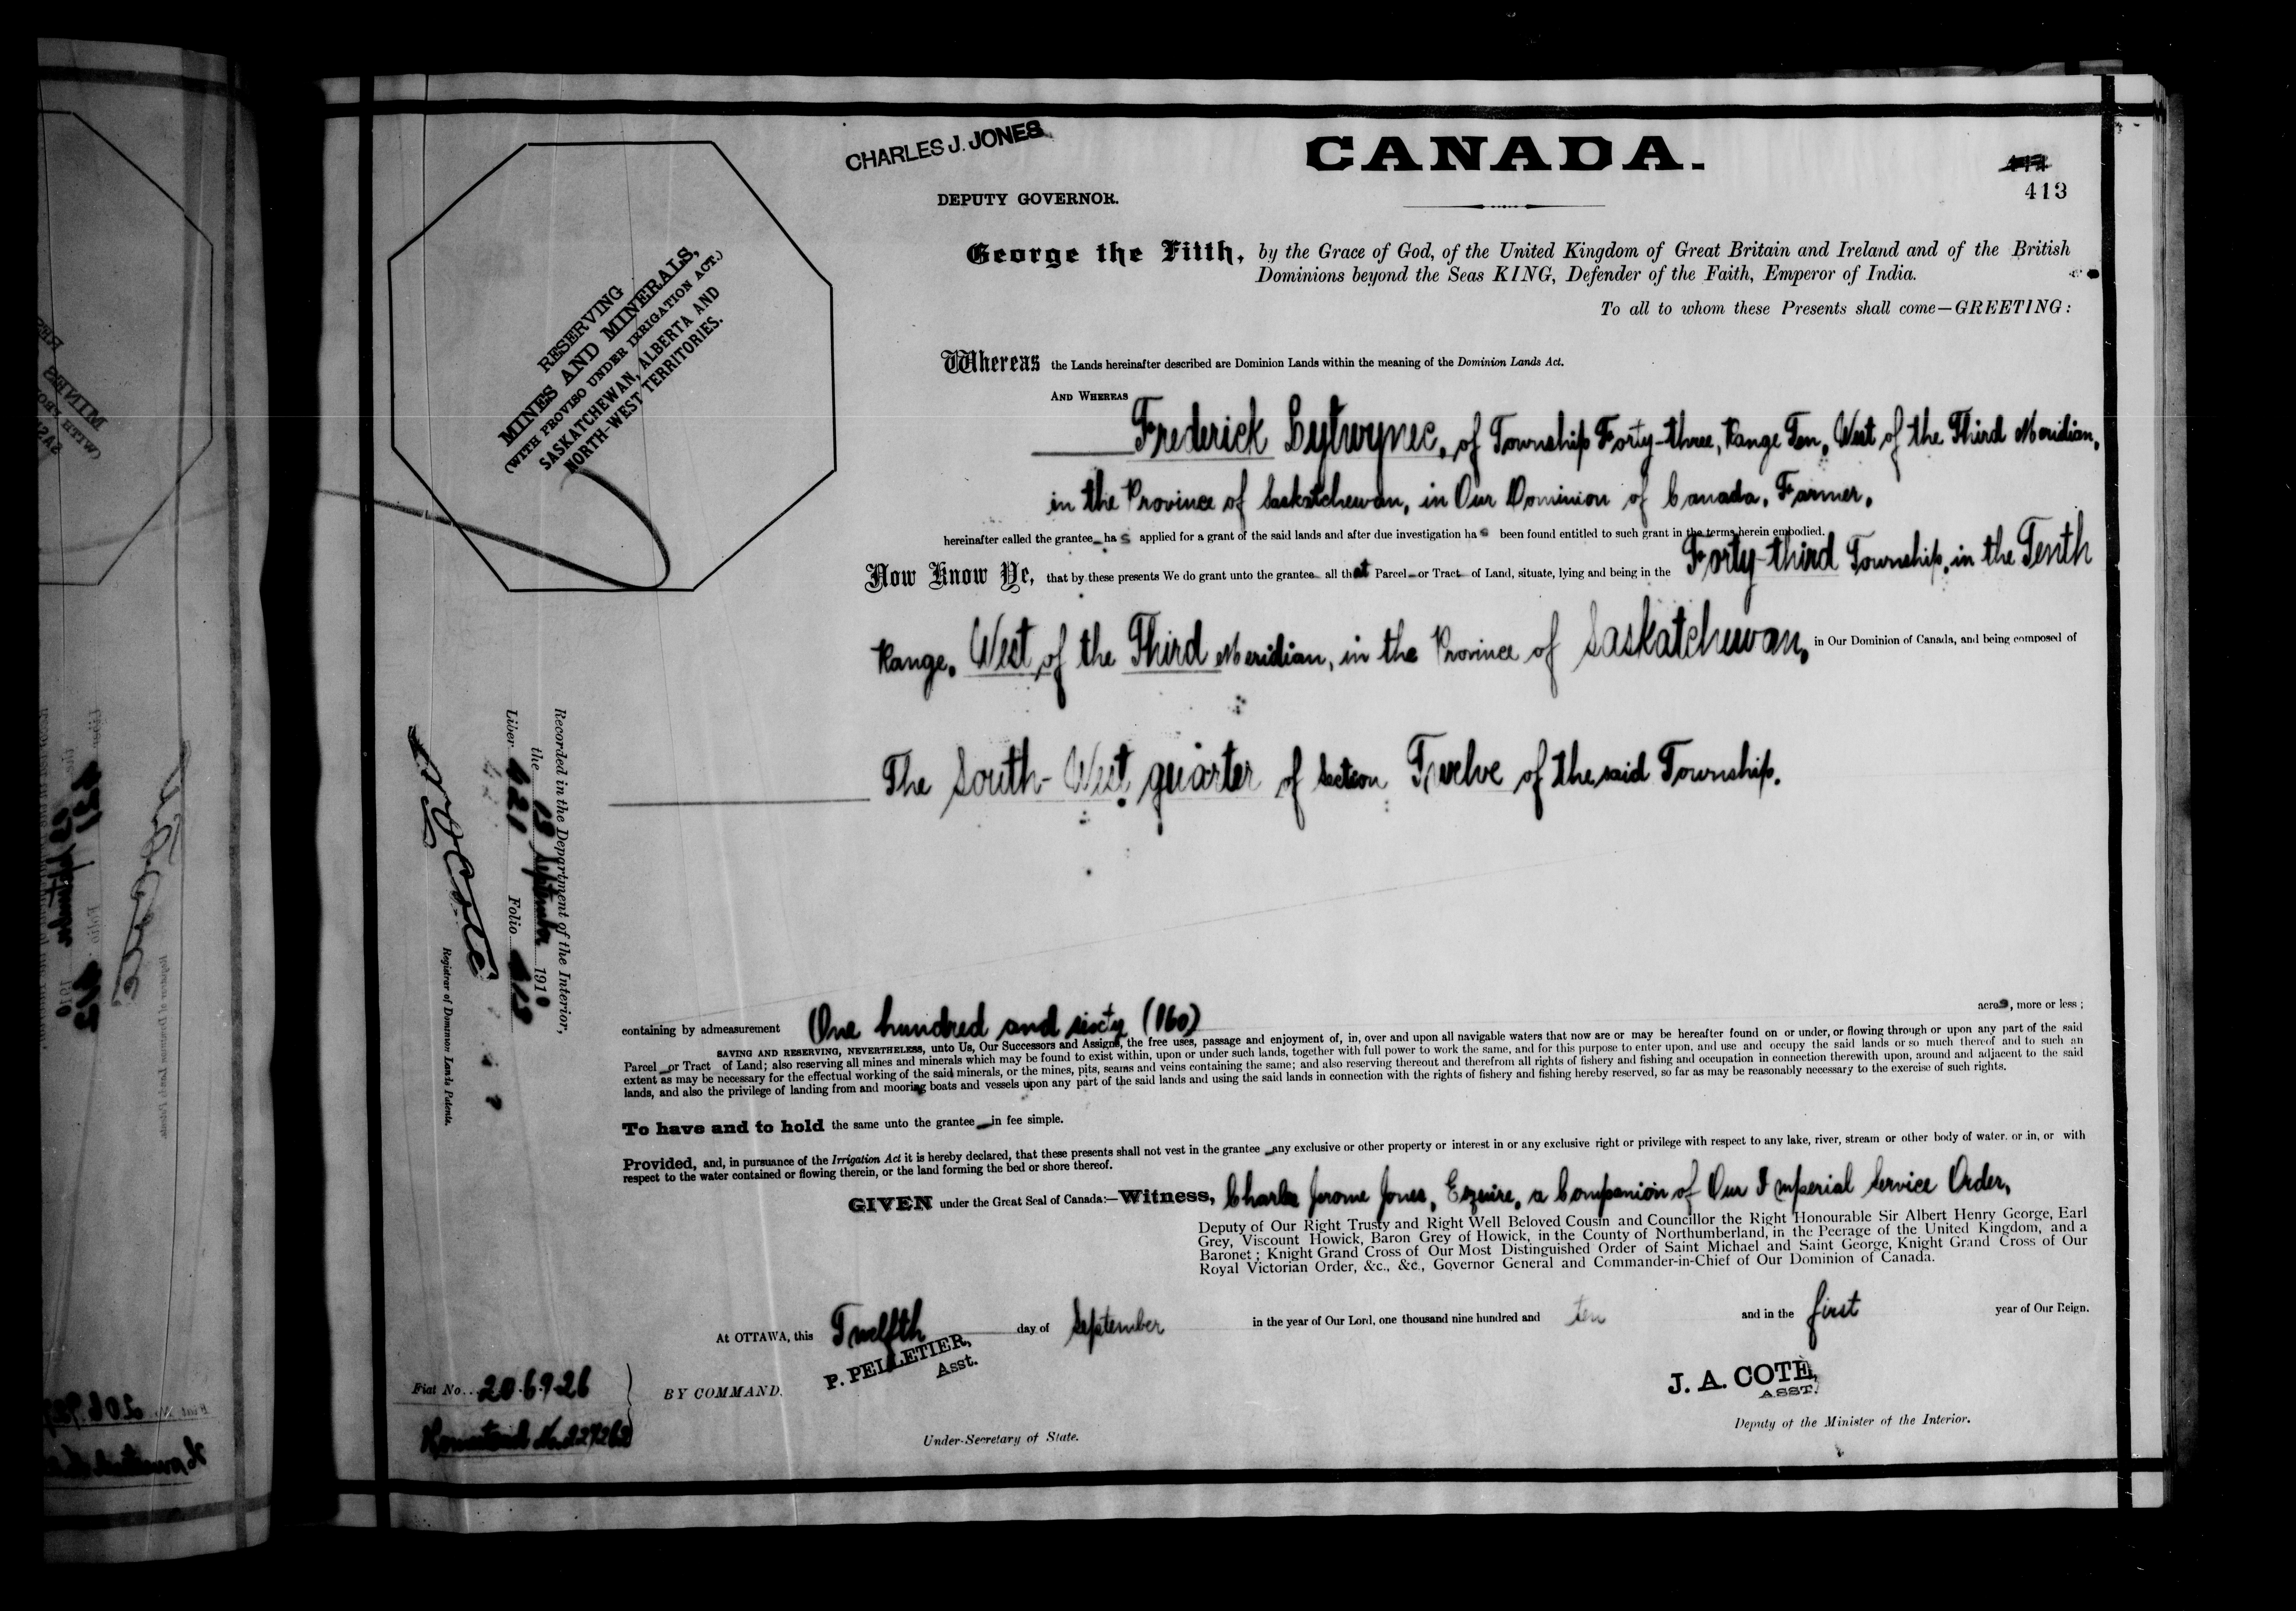 CHARLES J. JONES
DEPUTY GOVERNOR.
CANADA.
413
RESERVING
MINES AND MINERALS,
(WITH PROVISO UNDER IRRIGATION ACT.)
SASKATCHEWAN, ALBERTA AND
NORTH-WEST TERRITORIES.
George the Fifth, by the Grace of God, of the United Kingdom of Great Britain and Ireland and of the British
Dominions beyond the Seas KING, Defender of the Faith, Emperor of India.
To all to whom these Presents shall come—GREETING:
Whereas the Lands hereinafter described are Dominion Lands within the meaning of the Dominion Lands Act.
AND WHEREAS
Frederick Lytwynec, of Township Forty-three, Range Ten, West of the Third Meridian,
in the Province of Saskatchewan, in Our Dominion of Canada, Farmer,
hereinafter called the grantee has applied for a grant of the said lands and after due investigation has been found entitled to such grant in the terms herein embodied.
Now Know Ye, that by these presents We do grant unto the grantee all that Parcel or Tract of Land, situate, lying and being in the Forty-third Township, in the Tenth
Range, West of the Third Meridian, in the Province of Saskatchewan, in Our Dominion of Canada, and being composed of
The South-West quarter of Section Twelve of the said Township.
Recorded in the Department of the Interior,
the 19 September 1910
Liber 621 Folio 413
Registrar of Dominion Lands Patents.
containing by admeasurement One hundred and sixty (160) acres, more or less;
SAVING AND RESERVING, NEVERTHELESS, unto Us, Our Successors and Assigns, the free uses, passage and enjoyment of, in, over and upon all navigable waters that now are or may be hereafter found on or under, or flowing through or upon any part of the said
Parcel or Tract of Land; also reserving all mines and minerals which may be found to exist within, upon or under such lands, together with full power to work the same, and for this purpose to enter upon, and use and occupy the said lands or so much thereof and to such an
extent as may be necessary for the effectual working of the said minerals, or the mines, pits, seams and veins containing the same; and also reserving thereout and therefrom all rights of fishery and fishing and occupation in connection therewith upon, around and adjacent to the said
lands, and also the privilege of landing from and mooring boats and vessels upon any part of the said lands and using the said lands in connection with the rights of fishery and fishing hereby reserved, so far as may be reasonably necessary to the exercise of such rights.
To have and to hold the same unto the grantee in fee simple.
Provided, and, in pursuance of the Irrigation Act it is hereby declared, that these presents shall not vest in the grantee any exclusive or other property or interest in or any exclusive right or privilege with respect to any lake, river, stream or other body of water, or in, or with
respect to the water contained or flowing therein, or the land forming the bed or shore thereof.
GIVEN under the Great Seal of Canada:—Witness, Charles Jerome Jones, Esquire, a Companion of Our Imperial Service Order,
Deputy of Our Right Trusty and Right Well Beloved Cousin and Councillor the Right Honourable Sir Albert Henry George, Earl
Grey, Viscount Howick, Baron Grey of Howick, in the County of Northumberland, in the Peerage of the United Kingdom, and a
Baronet; Knight Grand Cross of Our Most Distinguished Order of Saint Michael and Saint George, Knight Grand Cross of Our
Royal Victorian Order, &c., &c., Governor General and Commander-in-Chief of Our Dominion of Canada.
At OTTAWA, this Twelfth day of September in the year of Our Lord, one thousand nine hundred and ten and in the first year of Our Reign.
P. PELLETIER,
Asst.
J. A. COTE,
ASST.
Fiat No. 206926
Homestead No.
BY COMMAND.
Under-Secretary of State.
Deputy of the Minister of the Interior.